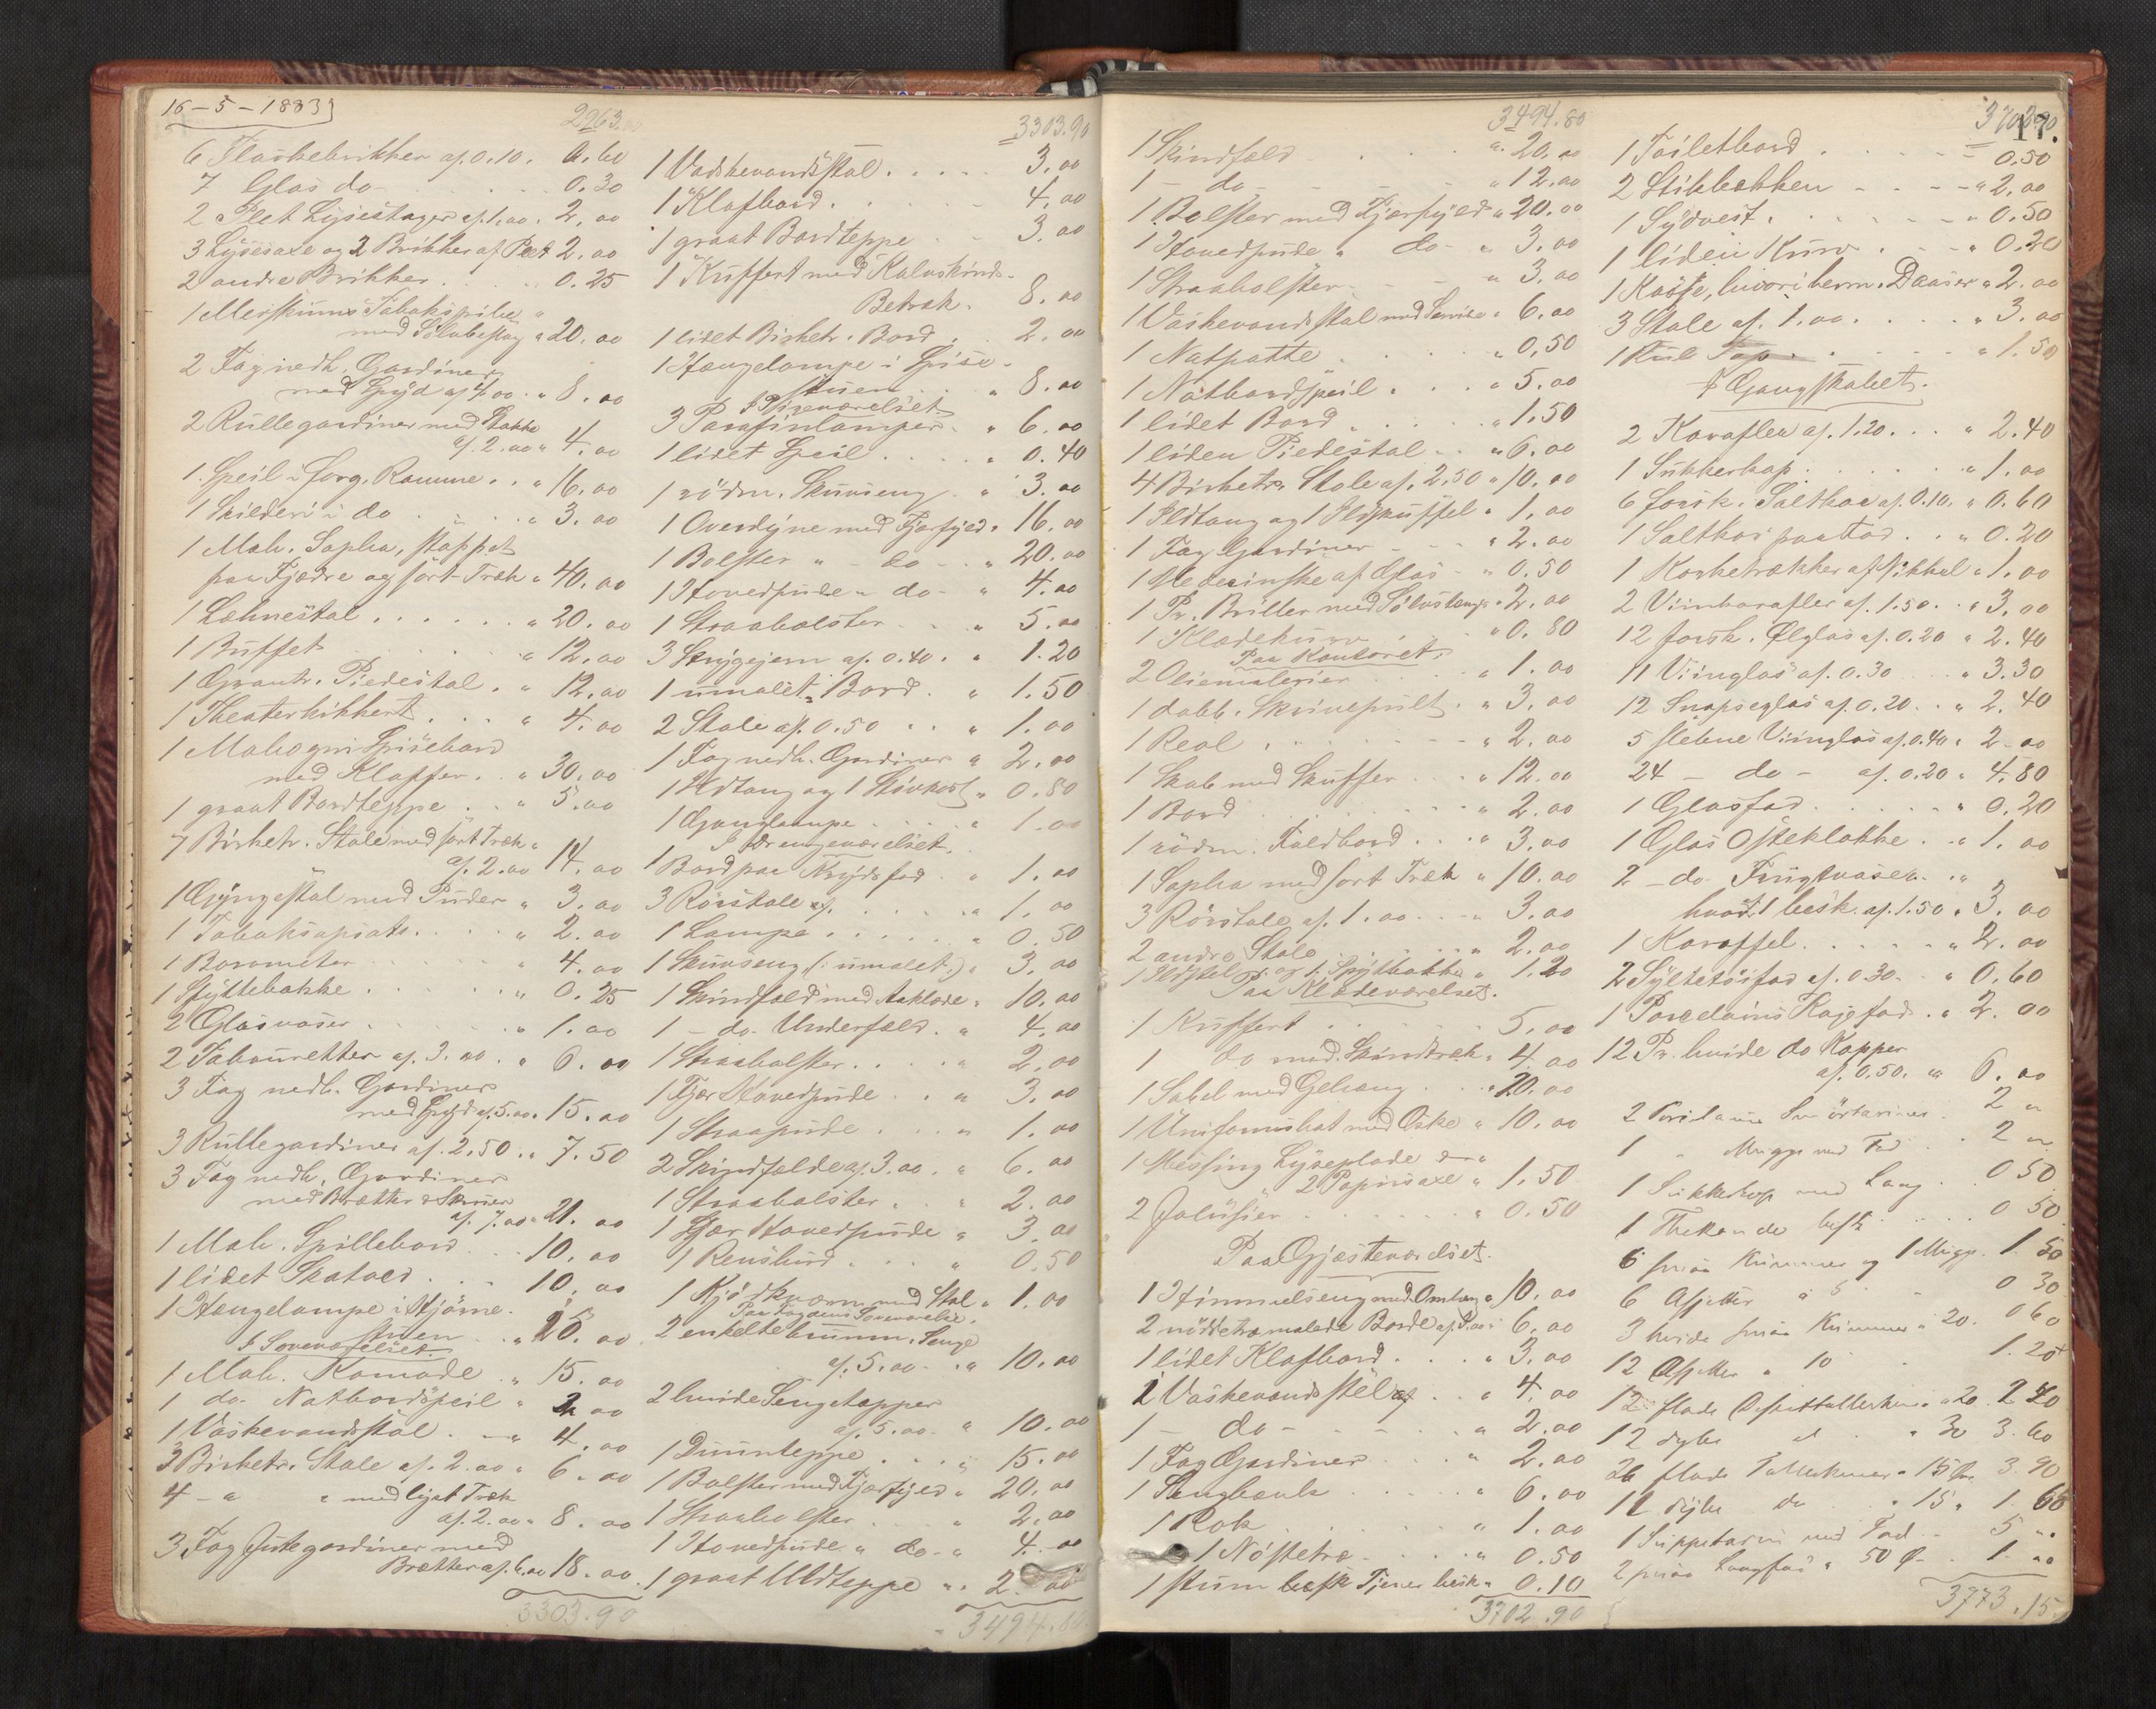 16-5-1883
2963.00
6 Flaskebrikker af 0.10. 0.60
7 Glas do 0.30
2 Plet Lysestager af 1.00. 2.00
3 Lysesaxe og 2 Brikker af Plet 2.00
2 andre Brikker 0.25
1 Merskums Tobakspibe
med Sølvbeslag " 20.00
2 Fag nedh. Gardiner
med Spyd af 4.00 " 8.00
2 Rullegardiner med
af 2.00 " 4.00
1 Speil i forg. Ramme " 16.00
1 Skilderi i do " 3.00
1 Mah. Sopha, stoppet
paa Fjædre og sort Træk " 40.00
1 Lænestol " 20.00
1 Buffet " 12.00
1 Piedestal " 12.00
1 Theaterkikkert " 4.00
1 Mahogni Spisebord
med Klapper " 30.00
1 graat Bordteppe " 5.00
7 Birketr. Stole med sort Træk "
af 2.00 14.00
1 Gyngestol med Puder " 3.00
1 Tobaks " 2.00
1 Barometer 4.00
1 Spyttebakke " 0.25
2 Glasvaser " 1.00
2 Tabouretter af 3.00 " 6.00
3 Fag nedh. Gardiner
med Spyd af 5.00 " 15.00
3 Rullegardiner af 2.50 " 7.50
3 Fag nedh. Gardiner
med Brætter & Skruer
af 7.00 " 21.00
1 Mah. Spillebord 10.00
1 lidet Skatol 10.00
1 Hængelampe i Hjørne-
stuen " 15.00
I Soveværelset
1 Mah. Komode " 15.00
1 do. Natbordspeil " 2.00
1 Vaskevandsstol " 4.00
3 Birketr. Stole af 2.00 " 6.00
4 - " " med lyst Træk
af 2.00 " 8.00
3 Fag Jutegardiner med
Brætter af 6.00 18.00
3303.90
3303.90
1 Vadskevandsstol 3.00
1 Klafbord 4.00
1 graat Bordteppe 3.00
1 Kuffert med Kalvskinds-
Betræk. 8.00
1 lidet Birketr. Bord 2.00
1 Hængelampe i Spise-
stuen " 8.00
I Pigeværelset
3 Parafinlamper " 6.00
1 lidet Speil " 0.40
1 rödm. Skuvseng " 3.00
1 Overdyne med Fjærfyld " 16.00
1 Bolster " - do - " 20.00
1 Hovedpude " do - " 4.00
1 Straabolster " 5.00
3 Strygejern af 0.40 " 1.20
1 umalet Bord " 1.50
2 Stole af 0.50 " 1.00
1 Fag nedh. Gardiner " 2.00
1 Ildtang og 1 Stövkost " 0.80
1 Ganglampe " 1.00
I Drengeværelset.
1 Bord paa Krydsfod " 1.00
3 Rörstole af " 1.00
1 Lampe " 0.50
1 Skuvseng (: umalet :) " 3.00
1 Skindfæld med Aaklæde " 10.00
1 - do. Underfæld " 4.00
1 Straabolster 2.00
1 Fjær Hovedpude " 3.00
1 Straapude " 1.00
2 Skindfælde af 3.00 " 6.00
1 Straabolster " 2.00
1 Fjær Hovedpude " 3.00
1 " 0.50
1 Kjödkværn med Stol " 1.00
Paa Soveværelse.
2 enkelte Senge
af 5.00 " 10.00
2 hvide Sengetæpper
af 5.00 " 10.00
1 Dunteppe 15.00
1 Bolster med Fjærfyld " 20.00
1 Straabolster " 2.00
1 Hovedpude " do " 4.00
1 graat Uldteppe " 2.00
3494.80
3494.80
1 Skindfæld " 20.00
1 - do - " 12.00
1 Bolster med Fjærfyld " 20.00
1 Hovedpude " do - " 3.00
1 Straabolster " 3.00
1 Vaskevandsstol med Servise " 6.00
1 Natpotte " 0.50
1 Natbordspeil " 5.00
1 lidet Bord " 1.50
1 liden Piedestal " 6.00
4 Birketr. Stole af 2.50 " 10.00
1 Ildtang og 1 Ildskuffel " 1.00
1 Fag Gardiner " 2.00
1 af Glas " 0.50
1 Pr. Briller med " 2.00
1 Klædekurv " 0.80
Paa Kontoret.
2 Oliemalerier " 1.00
1 dobb. Skrivepult " 3.00
1 Reol " 2.00
1 Skab med Skuffer " 12.00
1 Bord " 2.00
1 rödm. Foldbord " 3.00
1 Sopha med sort Træk " 10.00
3 Rörstole af 1.00 " 3.00
2 andre Stole " 2.00
1 og 1 Spytbakke " 1.20
Paa Klædeværelset.
1 Kuffert 5.00
1 do med Skindtræk " 4.00
1 Sabel med Gehæng " 20.00
1 Uniformshat med Æske " 10.00
1 Messing Lyseplade &
2 Papirsaxe " 1.50
2 Jalusier " 0.50
Paa Gjæsteværelset.
1 Himmelseng med Omhæng " 10.00
2 malede Borde af 3.00 " 6.00
1 lidet Klafbord " 3.00
1 Vaskevandsstol " 4.00
1 - do - " 2.00
1 Fag Gardiner " 2.00
1 Sengbænk " 6.00
1 Rok " 1.00
1 Nöstetræ " 0.50
1 stum Tjener besk. " 0.10
3702.90
3702.90
17.
1 Toiletbord 0.50
2 Stikbækken " 2.00
1 Sydvest " 0.50
1 liden Kurv " 0.20
1 Kasse, hvori herm. Daaser " 2.00
3 Stole af 1.00 " 3.00
1 " 1.50
I Gangskabet.
2 Karafler af 1.20 " 2.40
1 Sukkerkop " 1.00
6 forsk. Saltkar af 0.10 " 0.60
1 Saltkar paa Fod " 0.20
1 Korketrækker af Nikkel " 1.00
2 Viinkarafler af 1.50 " 3.00
12 forsk. Ølglas af 0.20 " 2.40
11 Viinglas af 0.30 " 3.30
12 Snapseglas af 0.20 " 2.40
5 slebne Viinglas af 0.40 " 2.00
24 - do - af 0.20 " 4.80
1 Glasfad " 0.20
1 Glas Osteklokke " 1.00
2 - do. Frugtvaser "
hvoraf 1 besk. af 1.50 " 3.00
1 Karaffel " 2.00
2 Syltetöifad af 0.30 " 0.60
1 Porcelains Kagefad " 2.00
12 Pr. hvide do Kopper
af 0.50 " 6.00
2 Porcelains Smörtariner 2 "
1 " Mugge med Fad 2 "
1 Sukkerkop med Laag 0 50
1 Thekande besk 0 50
6 smaa Kummer og 1 Mugge 1. 50
6 Asjetter à 5 0 30
3 hvide smaa Kummer à 20. 0 60
12 Asjetter " 10 1.20
12 flade Desserttallerkener " 20 2 40
12 dybe d " 30 3.60
26 flade Tallerkener " 15 3.90
11 dybe do " 15 " 1 65
1 Suppeterin med Fad 5 "
2 smaa Langfad " 50 Ø 1. 00
3773.15